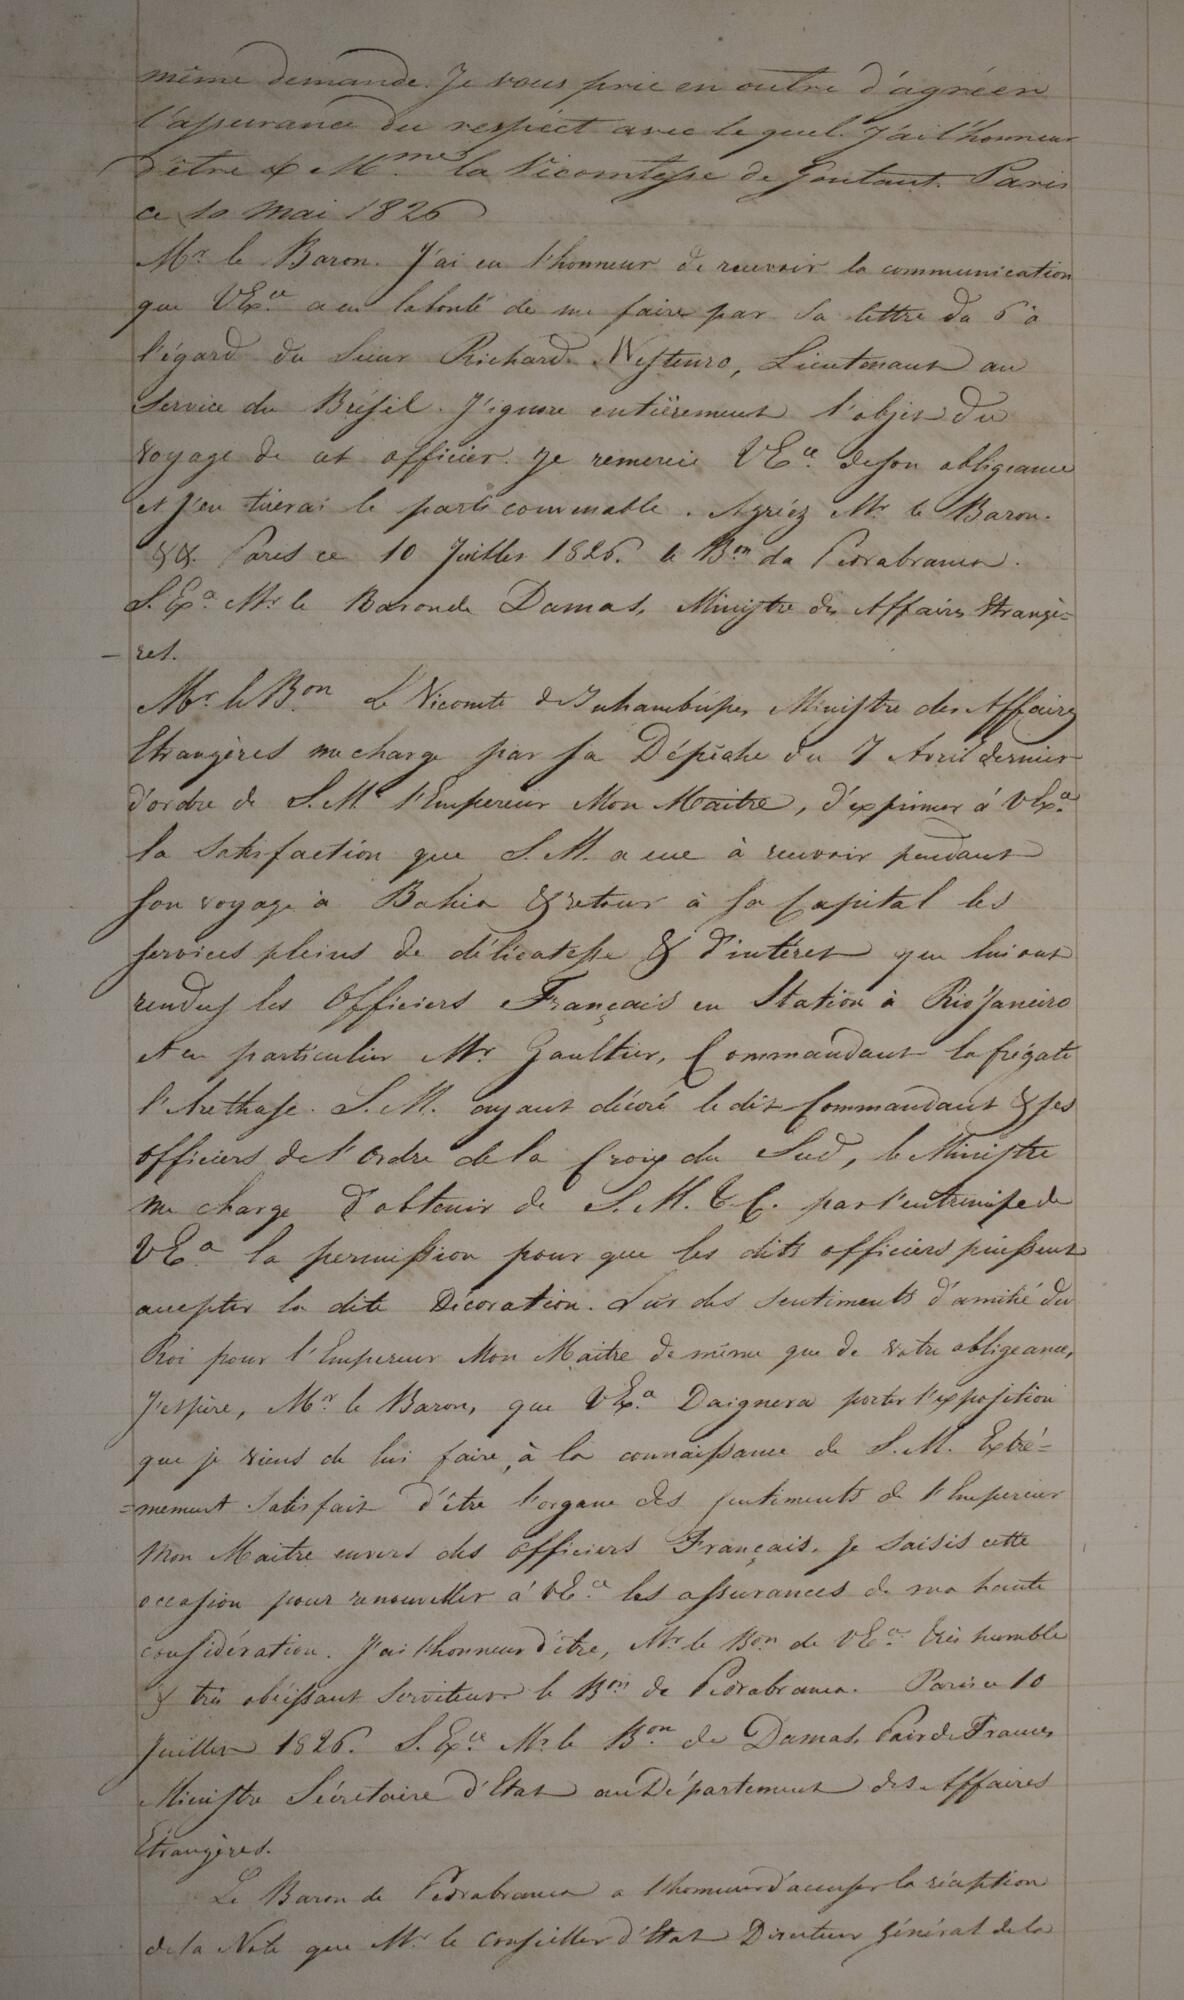 même demande. Je vous prie en outre d'agréer
l'assurance du respect avec lequel j'ai l'honneur
d'être & Mme la Vicomtesse de Gontaut. Paris
ce 10 Mai 1826
Mr. le Baron. J'ai eu l'honneur de recevoir la communication
que VExce. a eu la bonté de me faire par sa lettre du 6 à
l'égard du Sieur Richard, Lieutenant au
Service du Brésil. J'ignore entièrement l'objet du
voyage de cet officier. Je remercie VEce. de son obligeance
et j'en tirerai le parti convenable. Agréez Mr. le Baron.
&&. Paris ce 10 Juillet 1826. le Bon. da Pedrabranca.
S. Exa. Mr. le Baron de Damas, Ministre des Affaires Etrangè=
res.
Mr. le Bon. Le Vicomte d'Inhambupe, Ministre des Affaires
Etrangères me charge par sa Dépêche du 7 Avril dernier
d'ordre de S. M. l'Empereur Mon Maitre, d'exprimer à VExa.
la satisfaction que S. M. a eue à recevoir pendant
son voyage à Bahia & retour à sa Capital les
services pleins de délicatesse & d'intéret que lui ont
rendus les Officiers Français en Station à Rio Janeiro
et en particulier Mr. Gaultier, Commandant la frégate
l'Arethuse. S. M. ayant décoré le dit Commandant & ses
officiers de l'Ordre de la Croix du Sud, le Ministre
me charge d'obtenir de S. M. T. C. par l'entremise de
VEa. la permission pour que les dits officiers puissent
accepter la dite Décoration. Sûr des sentiments d'amitié du
Roi pour l'Empereur Mon Maitre de même que de votre obligeance,
J'espère, Mr. le Baron, que VExa. Daignera porter l'exposition
que je viens de lui faire, à la connaissance de S. M. Extrê=
=mement satisfait d'être l'organe des sentiments de l'Empereur
Mon Maitre envers des officiers Français. Je saisis cette
occasion pour renouveller à VEce. les assurances de ma haute
considération. J'ai l'honneur d'être, Mr. le Bon. de VEce. très humble
& très obéissant Serviteur le Bon. de Pedrabranca. Paris ce 10
Juillet 1826. S. Exce. Mr. le Bon. de Damas, Pair de France,
Ministre Sécretaire d'Etat au Département des Affaires
Etrangères.
Le Baron de Pedrabranca a l'honneur d'accuser la réception
de la Note que Mr. le Conseiller d'Etat Directeur Général de la